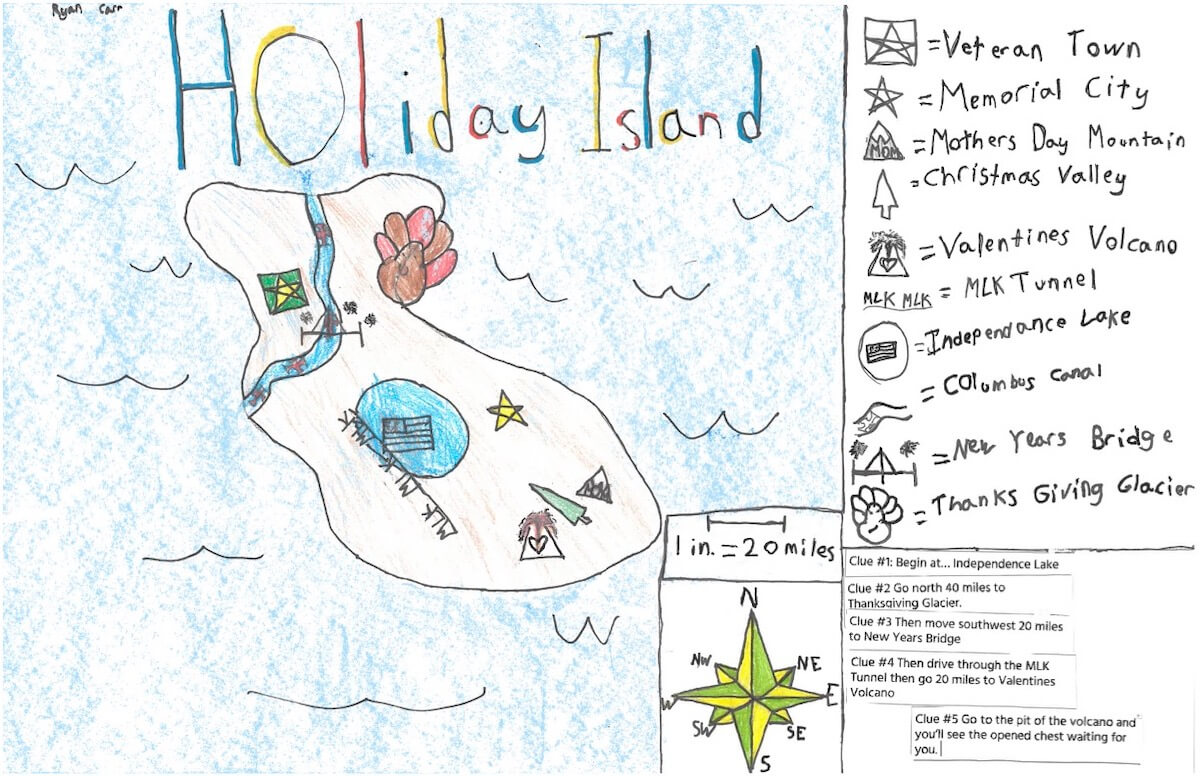 Ryan Carr
Holiday Island
= Veteran Town
= Memorial City
MOM = Mothers Day Mountain
= Christmas Valley
= Valentines Volcano
MLK MLK = MLK Tunnel
= Independance Lake
= Columbus Canal
= New Years Bridge
= Thanks Giving Glacier
MLK
MLK
MLK
MOM
1 in. = 20 miles
N
NW NE
W E
SW SE
S
Clue #1: Begin at... Independence Lake
Clue #2 Go north 40 miles to
Thanksgiving Glacier.
Clue #3 Then move southwest 20 miles
to New Years Bridge
Clue #4 Then drive through the MLK
Tunnel then go 20 miles to Valentines
Volcano
Clue #5 Go to the pit of the volcano and
you'll see the opened chest waiting for
you.